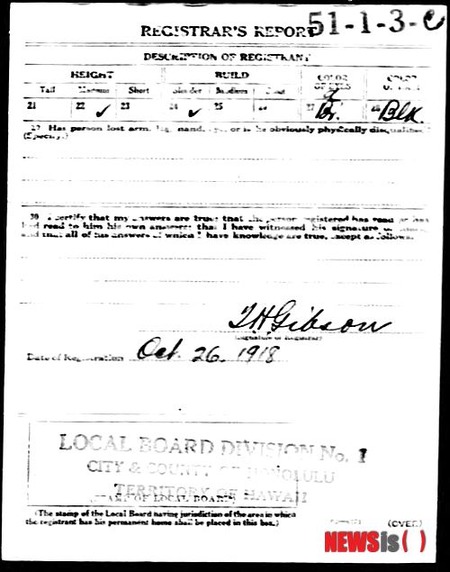 51-1-3-C
REGISTRAR'S REPORT
DESCRIPTION OF REGISTRANT
HEIGHT BUILD COLOR OF EYES COLOR
Tall Medium Short Slender Medium Stout
21 22 ✓ 23 24 ✓ 25 27 Br. Blk.
Has person lost arm, leg, hand, or is he obviously physically disqualified?
(Specify.)
30 I certify that my answers are true; that the person registered has read or has
had read to him his own answers; that I have witnessed his signature or
and that all of his answers of which I have knowledge are true, except as follows:
(Signature of Registrar)
Date of Registration Oct. 26, 1918
LOCAL BOARD DIVISION No. 1
CITY & COUNTY OF HONOLULU
TERRITORY OF HAWAII
(STAMP OF LOCAL BOARD)
(The stamp of the Local Board having jurisdiction of the area in which
the registrant has his permanent home shall be placed in this box.)
(OVER)
NEWSis( )